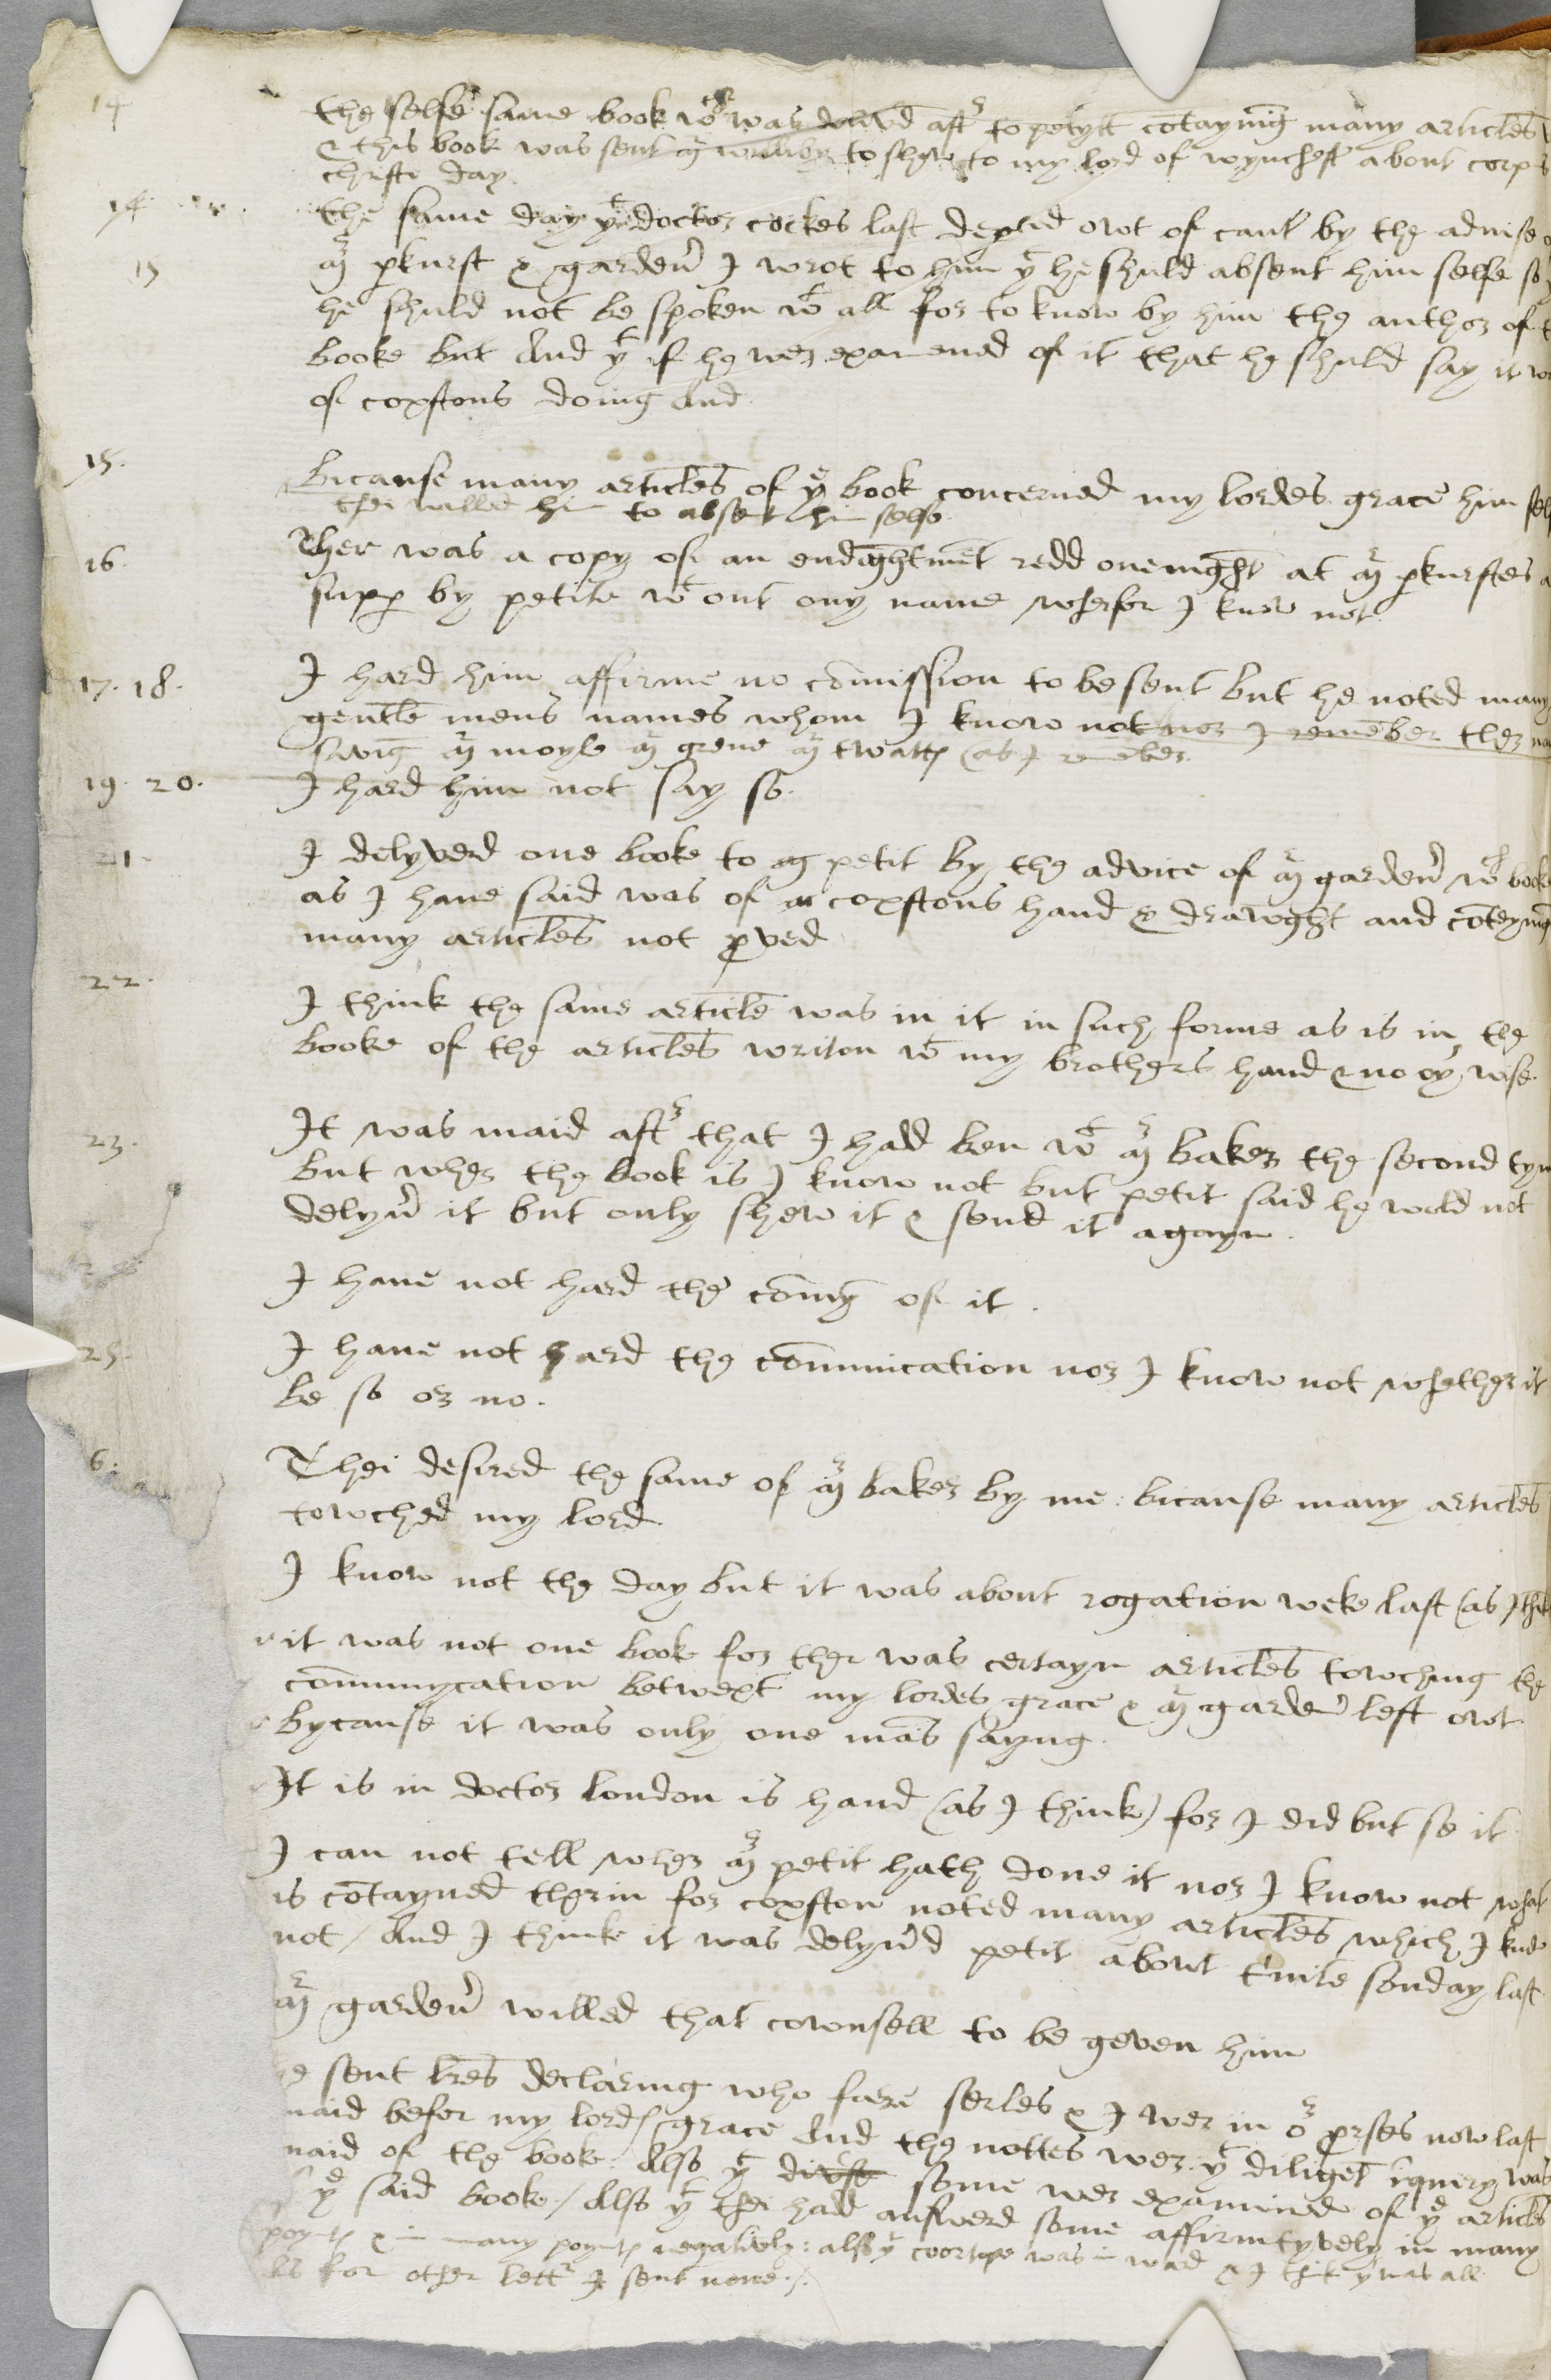 14 the selfe same book wch was delivd aftr to petyt cōtaynīg many articles
& this book was sent mr willuby to shew to my lord of wynchestr about corp
christi day
14 the same day yt doctor cockes last deptd owt of cantr by the advise
15 mr pkurst & gardenr I wrot to him yt he shuld absent him selfe so
he shuld not be spoken wt all for to know by him the author of t
booke but And yt if he wer examened of it that he shuld say it w
of coxstons doing And
15. Bicause many articles of ye book concerned my lordes grace him self
thei willed hī to absēt hī selfe
16. Ther was a copy of an endightmēt redd one night at mr pkurstes a
supp by petite wt out ony name wherfor I know not
17. 18. I hard him affirme no cōmission to be sent but he noted many
gentle mens names whom I know not nor I remēber ther na
savīg mr moyle mr grene mr twatts (as I remēber
19. 20. I hard him not say so.
21. I delyverd one booke to mr petit by the advice of mr gardenr wch booke
as I have said was of coxstons hand & drawght and cōteynīg
many articles not pved
22. I think the same article was in it in such forme as is in the
booke of the articles writen wt my brothers hand & no oyr wise.
23. It was maid aftr that I had ben wt mr baker the second tym
but wher the book is I know not but petit said he wold not
delyvr it but only shew it & send it agayn.
I have not hard the cōmīg of it.
25. I have not hard the cōmunication nor I know not whether it
be so or no.
6. Thei desired the same of mr baker by me: bicause many articles
towched my lord
I know not the day but it was about rogation weke last (as I thīk
it was not one book for ther was certayn articles towching the
cōmunycation betwext my lordes grace & mr gardenr left owt
bycause it was only one mās sayng.
It is in doctor london is hand (as I think) for I did but se it
I can not tell wher mr petit hath done it nor I know not what
is cōtayned therin for coxston noted many articles which I knew
not / And I think it was delyvrd petit about trinite sonday last
mr gardenr willed that cownsell to be geven him
e sent lres declaring who farre serles & I wer in or purses now last
maid befor my lords grace And the nottes wer yt diligēt īquery was
maid of the book. Also yt divse some wer examined of ye articles
f ye said booke / Also yt thei had answerd some affirmtyvely in many
poynts & in many poynts negatively: also yt coortope was in ward & I thīk yt was all
As for other lettr I sent none./.